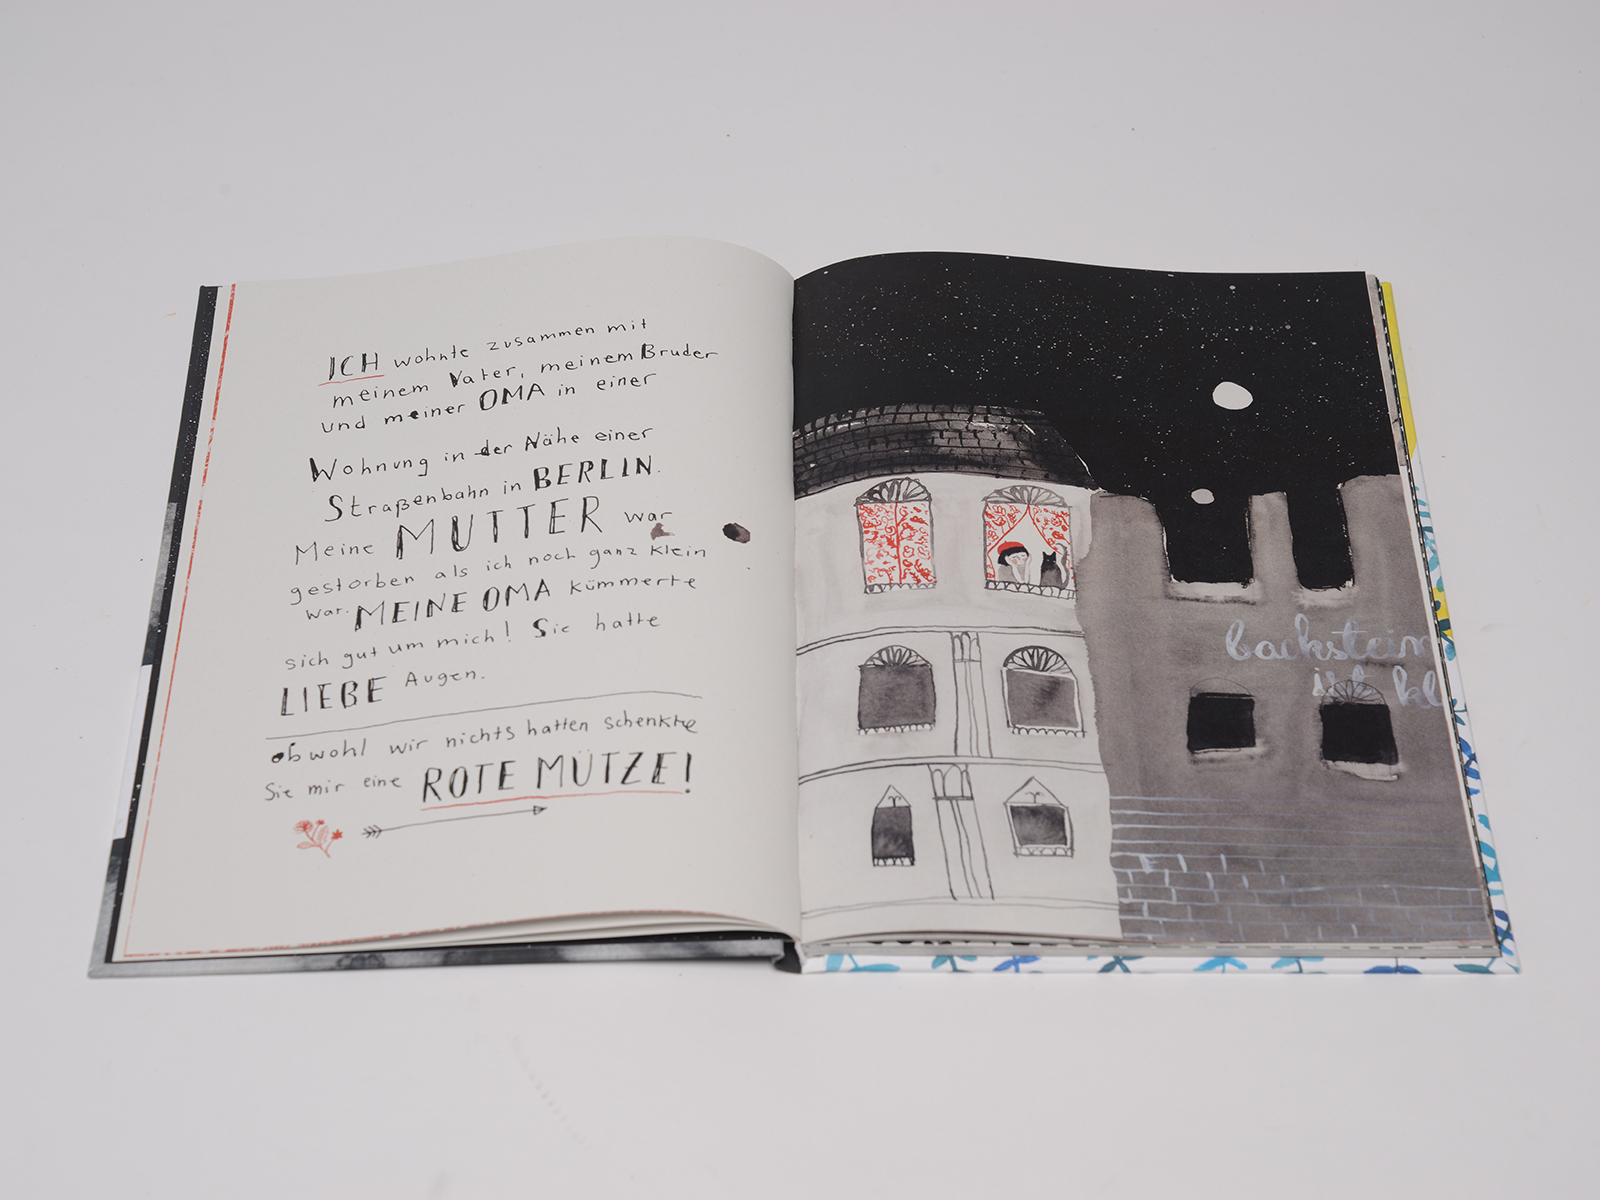 ICH wohnte zusammen mit
meinem Vater, meinem Bruder
und meiner OMA in einer
Wohnung in der Nähe einer
Straßenbahn in BERLIN.
Meine MUTTER war
gestorben als ich noch ganz klein
war. MEINE OMA kümmerte
sich gut um mich! Sie hatte
LIEBE Augen.
obwohl wir nichts hatten schenkte
Sie mir eine ROTE MÜTZE!
backstein